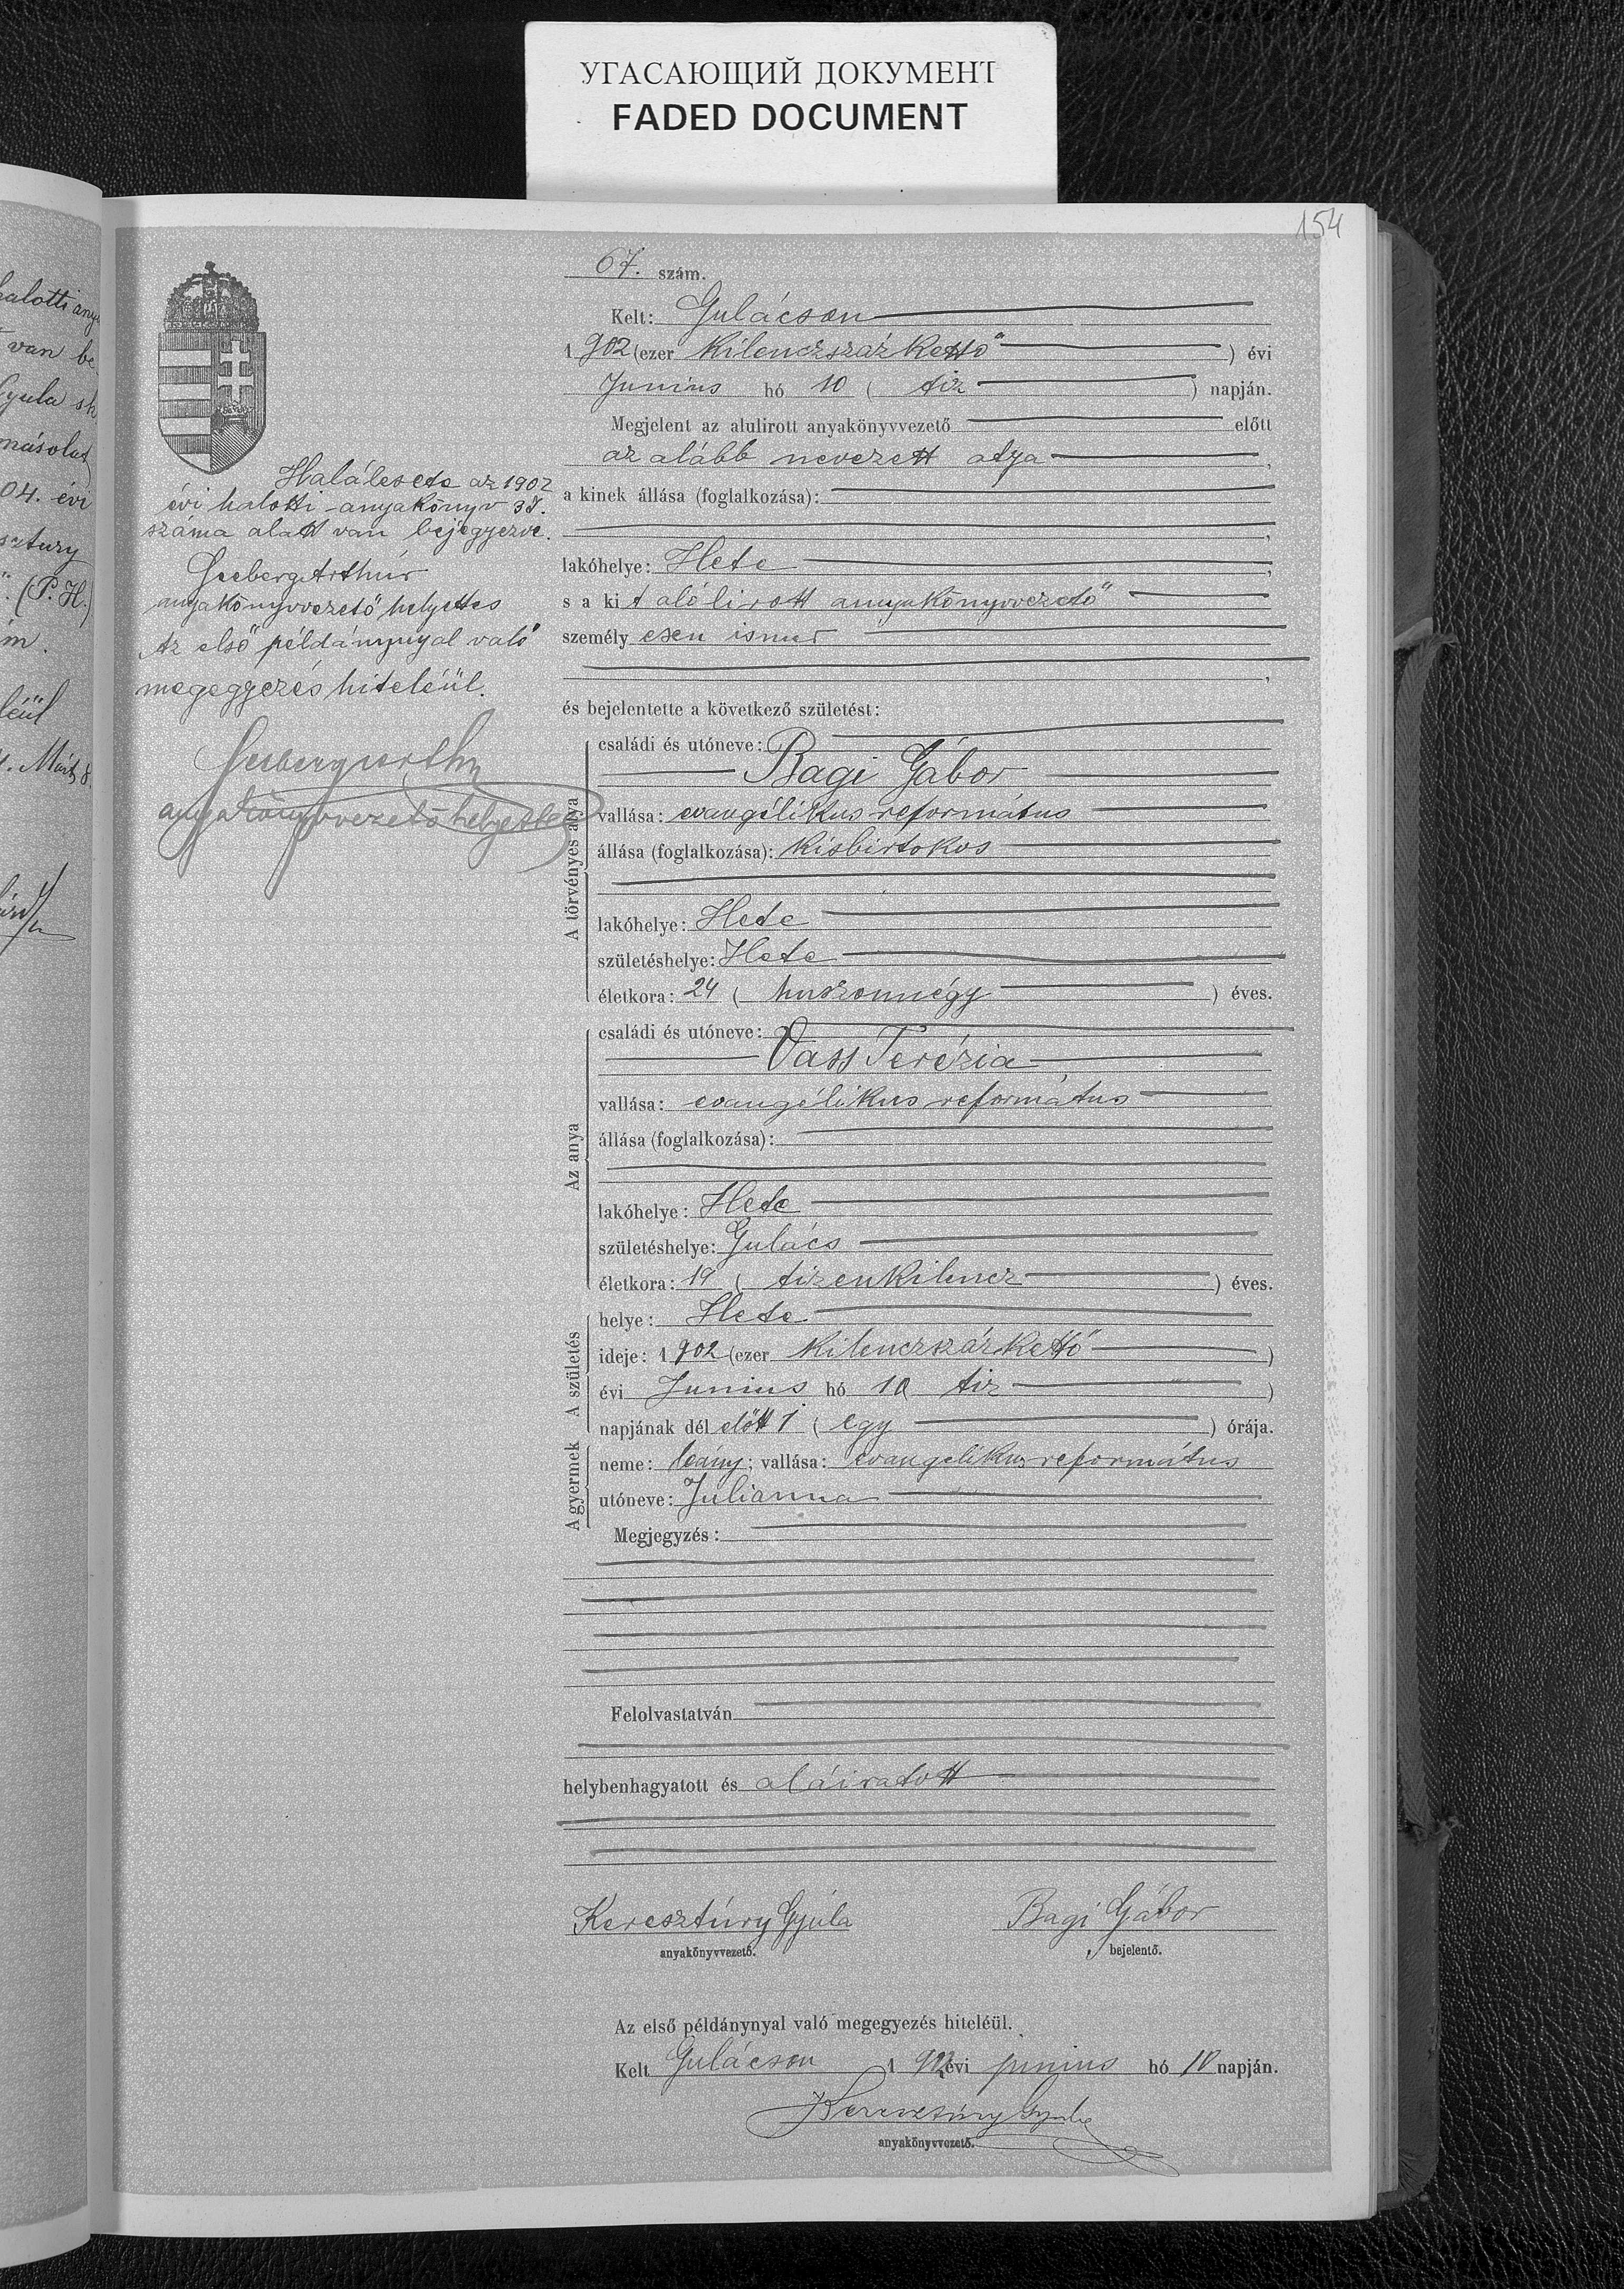 УГАСАЮЩИЙ ДОКУМЕНТ
FADED DOCUMENT
154
halotti anya
van be
Gyula sk
másolat
04. évi
sztury
(P. H.)
m.
léül
Márt. 8.
67. szám.
Kelt: Gulácson
1902 (ezer kilenczszázkettő) évi
Junius hó 10 (tiz) napján.
Megjelent az alulirott anyakönyvvezető előtt
az alább nevezett atya,
a kinek állása (foglalkozása):
lakóhelye: Hete,
s a kit alólirott anyakönyvvezető
személyesen ismer
és bejelentette a következő születést:
Haláleseta az 1902
évi halotti anyakönyv 37.
száma alatt van bejegyezve.
Seeberg Arthúr
anyakönyvvezető helyettes
Az első példánynyal való
megegyezés hiteléül.
anyakönyvvezető helyettes
A törvényes atya
családi és utóneve:
Bagi Gábor
vallása: evangélikus református
állása (foglalkozása): kisbirtokos
lakóhelye: Hete
születéshelye: Hete
életkora: 24 (huszonnégy) éves.
Az anya
családi és utóneve:
Vass Terézia
vallása: evangélikus református
állása (foglalkozása):
lakóhelye: Hete
születéshelye: Gulács
életkora: 19 (tizenkilencz) éves.
A születés
helye: Hete
ideje: 1902 (ezer kilenczszázkettő)
évi Junius hó 10 tiz)
napjának dél előtt 1 (egy) órája.
A gyermek
neme: leány; vallása: evangelikus református
utóneve: Julianna
Megjegyzés:
Felolvastatván
helybenhagyatott és aláiratott
Keresztúry Gyula Bagi Gábor
anyakönyvvezető. bejelentő.
Az első példánynyal való megegyezés hiteléül.
Kelt Gulácson 1902 évi junius hó 10 napján.
Keresztúry Gyula
anyakönyvvezető.